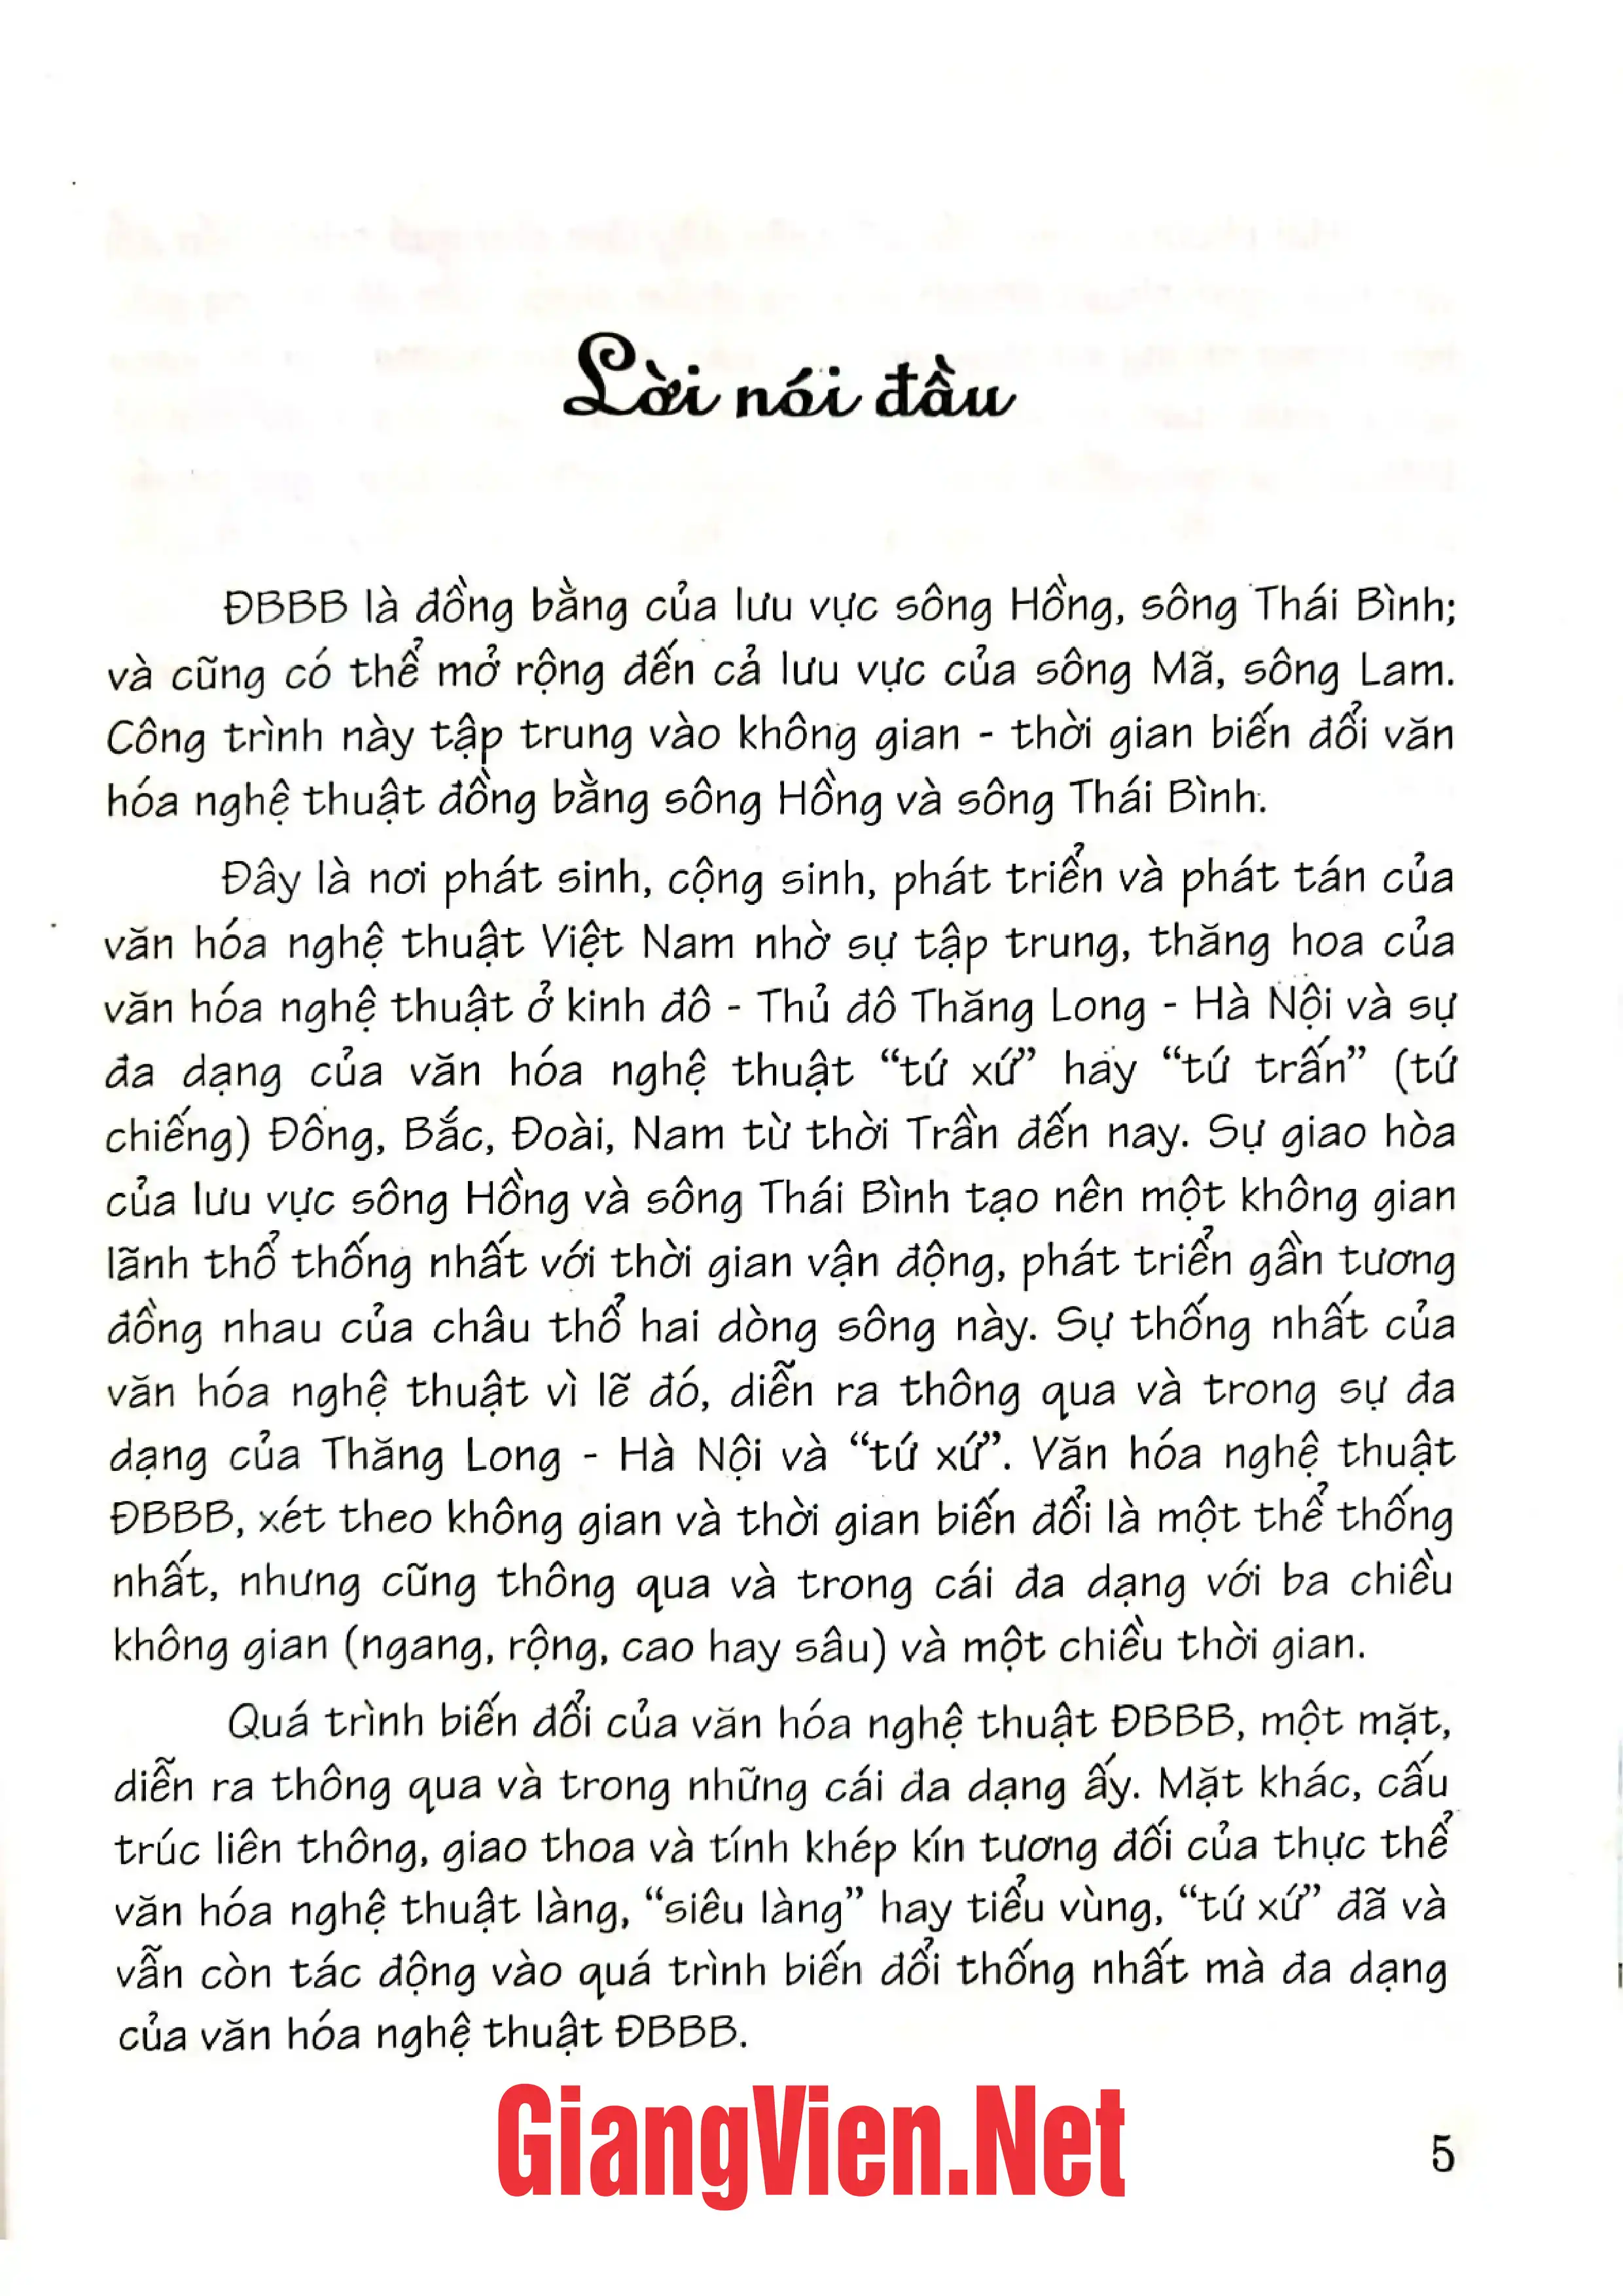 Lời nói đầu
ĐBBB là đồng bằng của lưu vực sông Hồng, sông Thái Bình;
và cũng có thể mở rộng đến cả lưu vực của sông Mã, sông Lam.
Công trình này tập trung vào không gian - thời gian biến đổi văn
hóa nghệ thuật đồng bằng sông Hồng và sông Thái Bình.
Đây là nơi phát sinh, cộng sinh, phát triển và phát tán của
văn hóa nghệ thuật Việt Nam nhờ sự tập trung, thăng hoa của
văn hóa nghệ thuật ở kinh đô - Thủ đô Thăng Long - Hà Nội và sự
đa dạng của văn hóa nghệ thuật “tứ xứ” hay “tứ trấn” (tứ
chiếng) Đông, Bắc, Đoài, Nam từ thời Trần đến nay. Sự giao hòa
của lưu vực sông Hồng và sông Thái Bình tạo nên một không gian
lãnh thổ thống nhất với thời gian vận động, phát triển gần tương
đồng nhau của châu thổ hai dòng sông này. Sự thống nhất của
văn hóa nghệ thuật vì lẽ đó, diễn ra thông qua và trong sự đa
dạng của Thăng Long - Hà Nội và “tứ xứ”. Văn hóa nghệ thuật
ĐBBB, xét theo không gian và thời gian biến đổi là một thể thống
nhất, nhưng cũng thông qua và trong cái đa dạng với ba chiều
không gian (ngang, rộng, cao hay sâu) và một chiều thời gian.
Quá trình biến đổi của văn hóa nghệ thuật ĐBBB, một mặt,
diễn ra thông qua và trong những cái đa dạng ấy. Mặt khác, cấu
trúc liên thông, giao thoa và tính khép kín tương đối của thực thể
văn hóa nghệ thuật làng, “siêu làng” hay tiểu vùng, “tứ xứ” đã và
vẫn còn tác động vào quá trình biến đổi thống nhất mà đa dạng
của văn hóa nghệ thuật ĐBBB.
GiangVien.Net
5